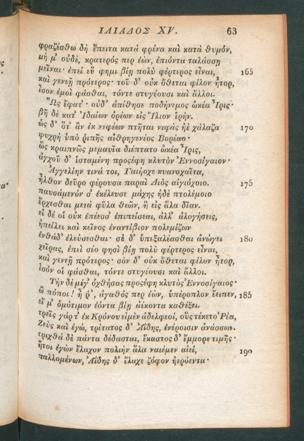 ΙΛΙΑΔΟΣ XV. 63
φραζέσθω δὴ ἔπειτα κατὰ φρένα καὶ κατὰ θυμόν,
μή μ' οὐδέ, κρατερός περ ἐών, ἐπιόντα ταλάσσῃ
μεῖναι· ἐπεὶ εὑ φημὶ βίῃ πολὺ φέρτερος εἶναι, 165
καὶ γενεῇ πρότερος· τοῦ δ' οὐκ ὄθεται φίλον ἦτορ,
ἶσον ἐμοὶ φάσθαι, τόντε στυγέουσι καὶ ἄλλοι.
Ὣς ἔφατ'· οὐδ' ἀπίθησε ποδήνεμος ὠκέα Ἶρις·
βῆ δὲ κατ' Ἰδαίων ὀρέων εἰς Ἴλιον ἱρήν.
ὡς δ' ὅτ' ἂν ἐκ νεφέων πτῆται νιφὰς ἠὲ χάλαζα 170
ψυχρὴ ὑπὸ ῥιπῆς αἰθρηγενέος Βορέαο·
ὣς κραιπνῶς μεμαυῖα διέπτατο ὠκέα Ἶρις,
ἀγχοῦ δ' ἱσταμένη προσέφη κλυτὸν Ἐννοσίγαιον·
Ἀγγελίην τινά τοι, Γαιήοχε κυανοχαῖτα,
ἦλθον δεῦρο φέρουσα παραὶ Διὸς αἰγιόχοιο. 175
παυσάμενόν σ' ἐκέλευσε μάχης ἠδὲ πτολέμοιο
ἔρχεσθαι μετὰ φῦλα θεῶν, ἢ εἰς ἅλα δῖαν.
εἰ δέ οἱ οὐκ ἐπέεσσ' ἐπιπείσεαι, ἀλλ' ἀλογήσεις,
ἠπείλει καὶ κεῖνος ἐναντίβιον πολεμίζων
ἐνθάδ' ἐλεύσεσθαι· σὲ δ' ὑπεξαλέασθαι ἀνώγει 180
χεῖρας, ἐπεὶ σέο φησὶ βίῃ πολὺ φέρτερος εἶναι,
καὶ γενεῇ πρότερος· σὸν δ' οὐκ ὄθεται φίλον ἦτορ,
ἶσόν οἱ φάσθαι, τόντε στυγέουσι καὶ ἄλλοι.
Τὴν δὲ μέγ' ὀχθήσας προσέφη κλυτὸς Ἐννοσίγαιος·
ὢ πόποι! ἦ ῥ', ἀγαθός περ ἐών, ὑπέροπλον ἔειπεν, 185
εἴ μ' ὁμότιμον ἐόντα βίῃ ἀέκοντα καθέξει.
τρεῖς γάρ τ' ἐκ Κρόνου εἰμὲν ἀδελφεοί, οὓς τέκετο Ῥέα,
Ζεὺς καὶ ἐγώ, τρίτατος δ' Ἀΐδης, ἐνέροισιν ἀνάσσων.
τριχθὰ δὲ πάντα δέδασται, ἕκαστος δ' ἔμμορε τιμῆς·
ἤτοι ἐγὼν ἔλαχον πολιὴν ἅλα ναιέμεν αἰεί, 190
παλλομένων, Ἀΐδης δ' ἔλαχε ζόφον ἠερόεντα·